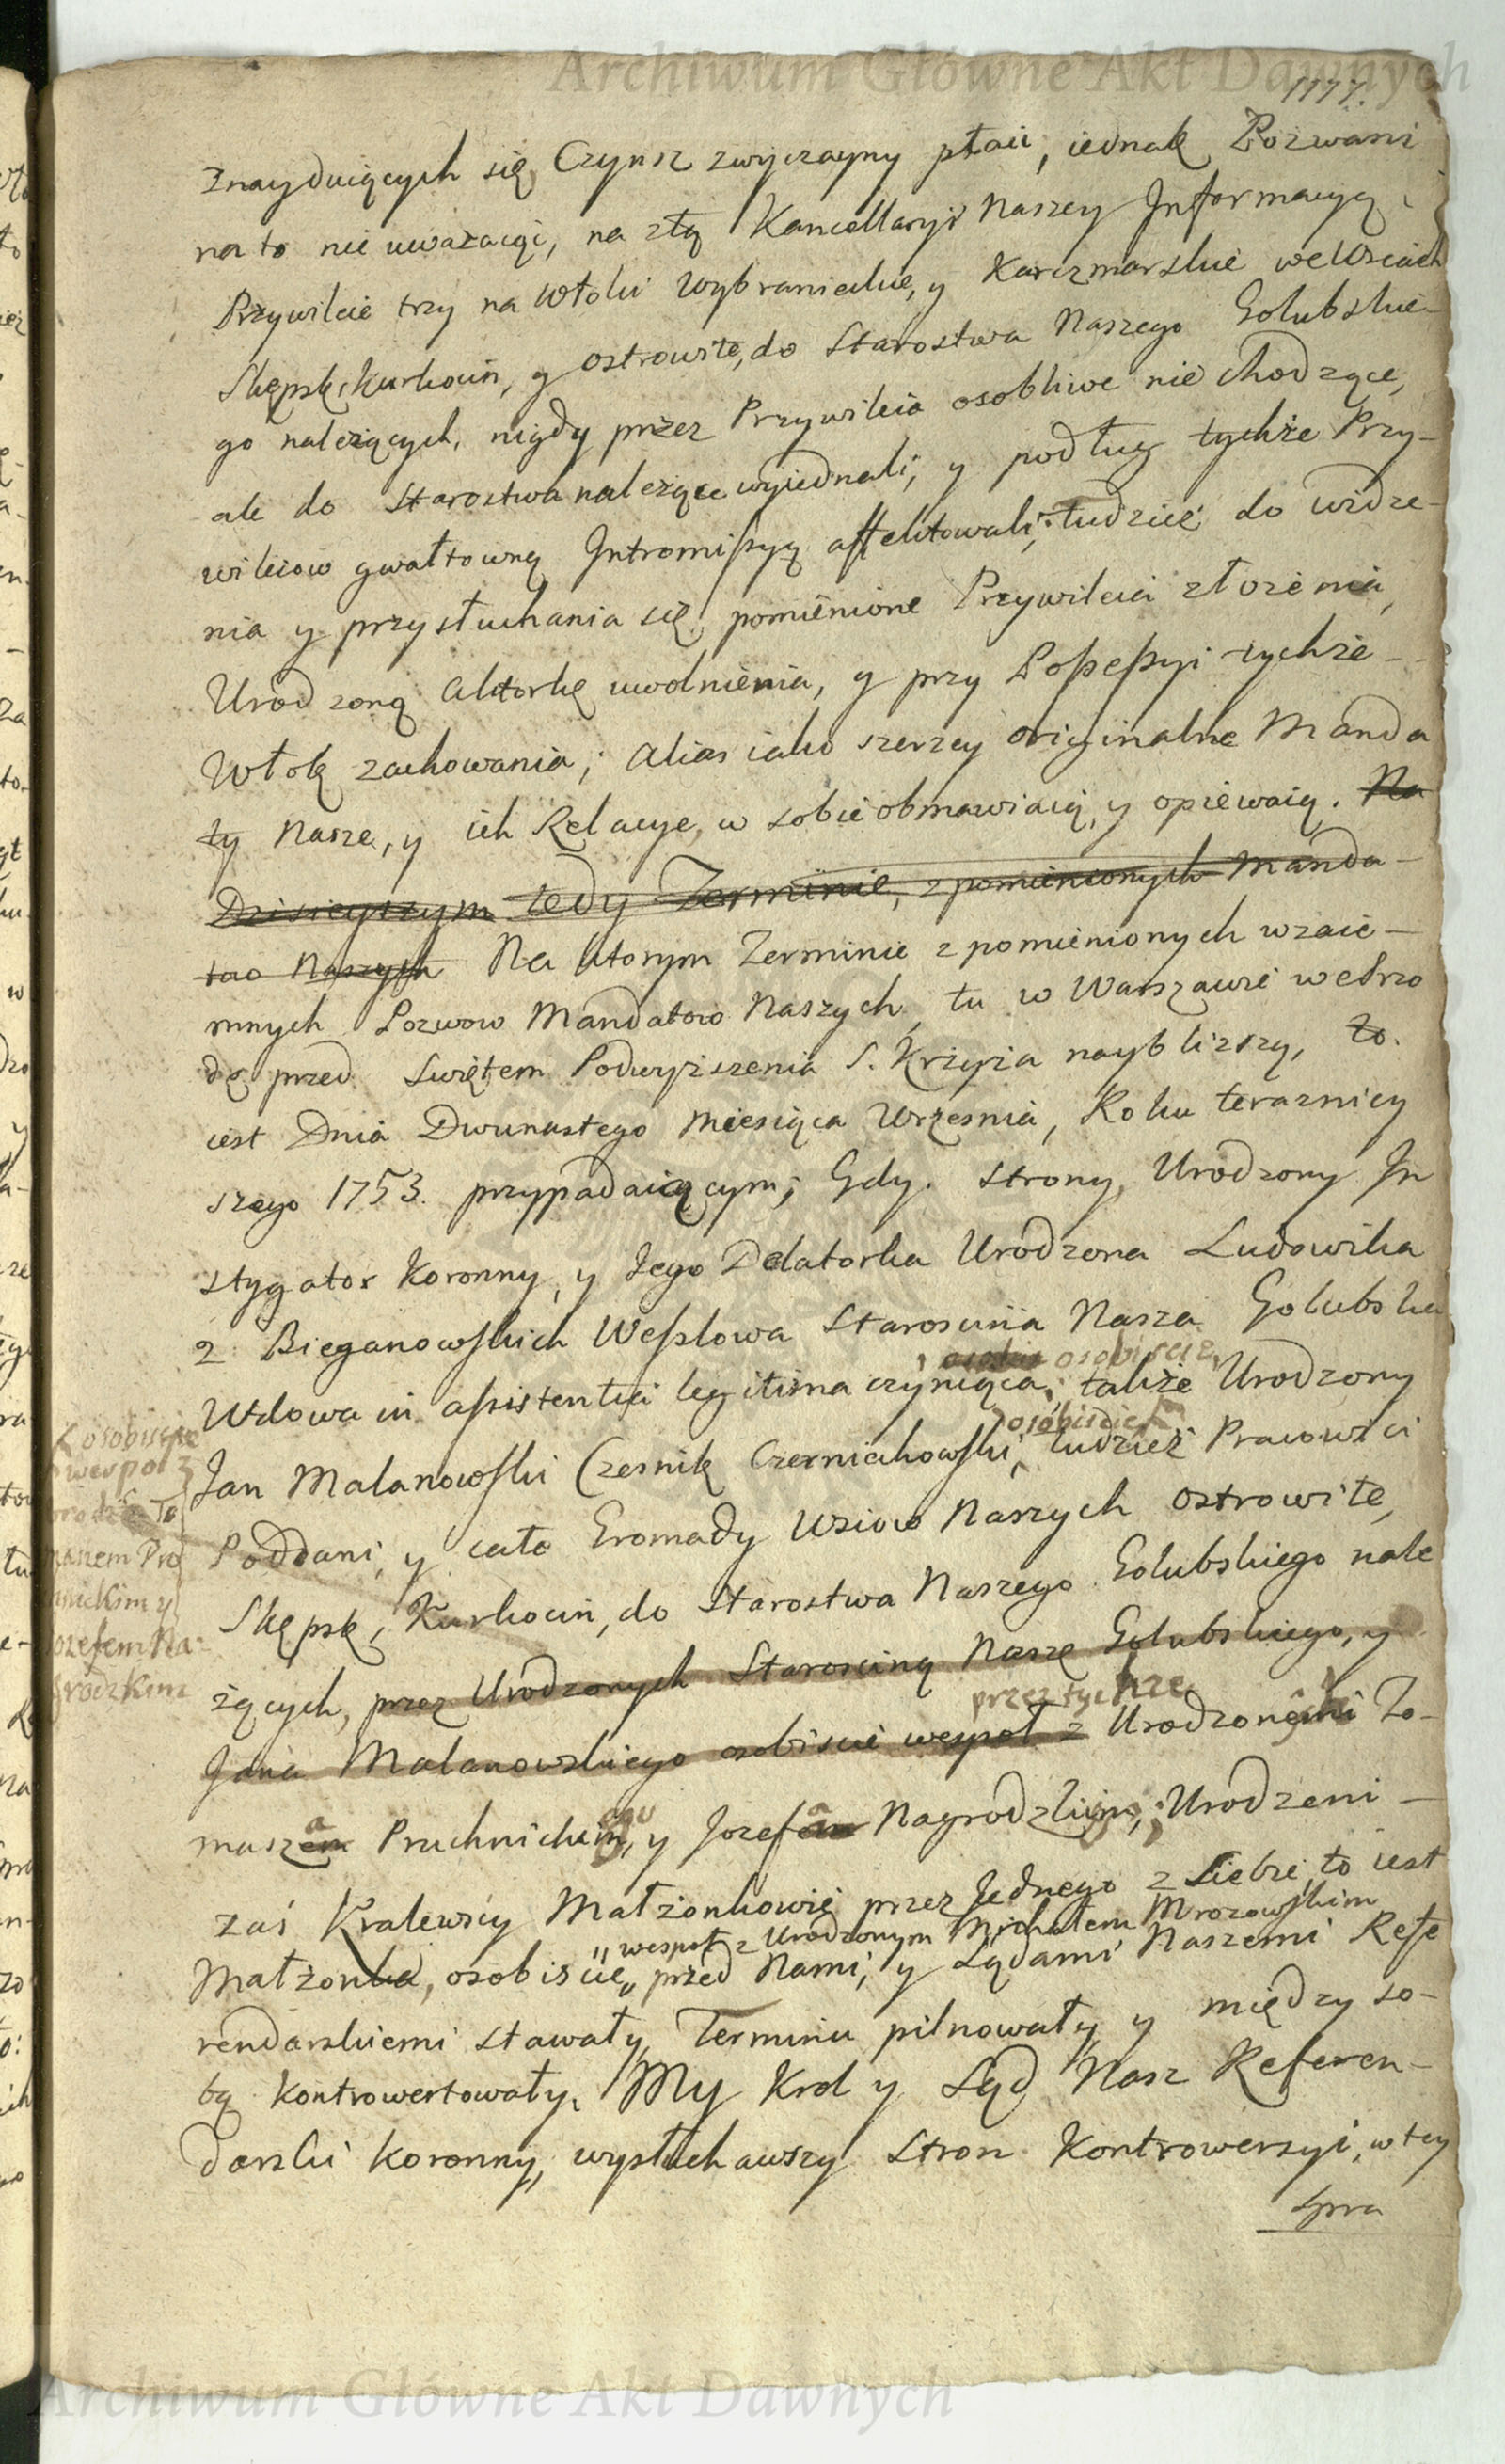 Archiwum Główne Akt Dawnych
1177.
Znayduiących się Czynsz zwyczayny płaci, iednak Pozwani
na to nie uwazaiąc, na złą Kancellaryi Naszey Informacyą
Przywileie trzy na Włoki Wybranieckie, y Karczmarskie we Wsiach
Skępsk, Kurkocin, y Ostrowite, do Starostwa Naszego Golubskie-
go nalezących, nigdy przez Przywileia osobliwe nie chodzące,
ale do Starostwa nalezące wyiednali, y podług tychże Przy-
wileiow gwałtowną Intromissyą affektowali; tudzież do widze-
nia y przysłuchania się, pomienione Przywileia złozenia,
Urodzoną Aktorkę uwolnienia, y przy Possessyi tychże -
Włok zachowania; alias iako szerzey originalne Manda
ty Nasze, y ich Relacye, w sobie obmawiaią, y opiewaią. Na
Dzisieyszym tedy Terminie, z pomienionych Manda-
tow Naszych Na ktorym Terminie z pomienionych wzaie-
mnych Pozwow Mandatow Naszych, tu w Warszawie we Srzo
dę przed Swiętem Podwyzszenia S. Krzyża nayblizszą, to
iest Dnia Dwunastego Miesiąca Wrzesnia, Roku terazniey
szego 1753. przypadaiącym; Gdy strony, Urodzony In
stygator Koronny, y Jego Delatorka Urodzona Ludowika
z Bieganowskich Wesslowa Starościna Nasza Golubska
osobiscie,
Wdowa in assistentia legitima czyniąca, także Urodzony
osobiscie
Jan Malanowski Czesnik Czerniechowski, tudzież Pracowici
osobiscie
wespol z
naszem Pro
hnickim y
ozefem Na=
grodzkim
Poddani, y całe Gromady Wsiow Naszych Ostrowite,
Skępsk, Kurkocin, do Starostwa Naszego Golubskiego nale
żących, przez Urodzonych Starościnę Naszę Golubskiego, y
przez tychze
Jana Malanowskiego osobiscie wespoł z Urodzonemi To-
maszem Pruchnickim, y Jozefem Nagrodzkim, Urodzeni -
zaś Kralewscy Małżonkowie przez Jednego z Siebie, to iest
" wespoł z Urodzonym Michałem Mrozowskim
Małżonka, osobiscie " przed Nami, y Sądami Naszemi Refe
rendarskiemi stawały, Terminu pilnowały, y między so-
bą kontrowertowały. My Krol y Sąd Nasz Referen-
darski Koronny, wysłuchawszy Stron Kontrowersyi, w tey
Spra
Archiwum Główne Akt Dawnych